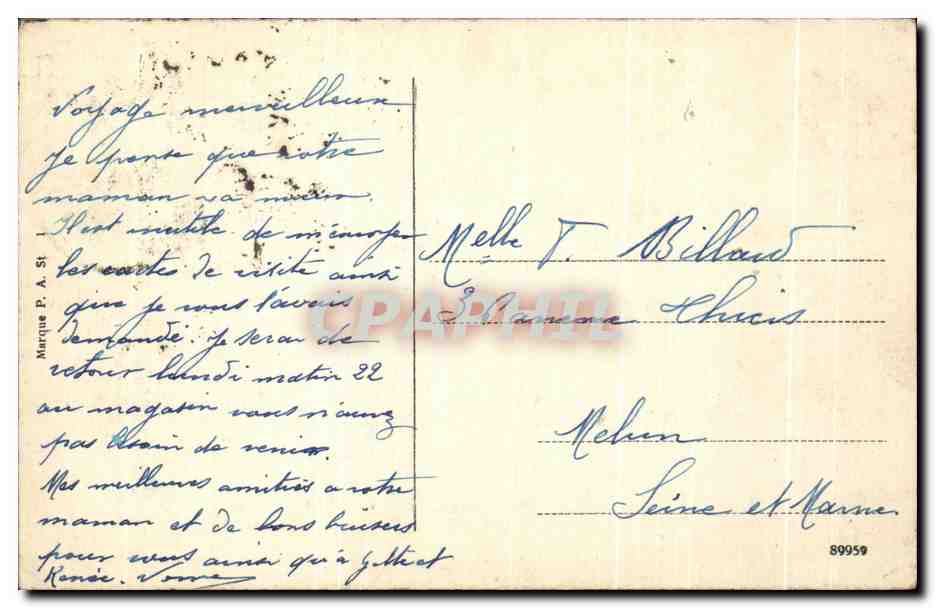 Voyage merveilleux.
Je pense que votre
maman va mieux.
Il est inutile de m'envoyer
les cartes de visite ainsi
que je vous l'avais
demandé. Je serai de
retour lundi matin 22
au magasin vous n'aurez
pas besoin de venir.
Mes meilleures amitiés a votre
maman et de bons baisers
pour vous ainsi qu'à et
Renée.
Marque P. A. St
Melle T. Billard
3 Thiers
Melun
Seine et Marne
89959
CPARPHIL